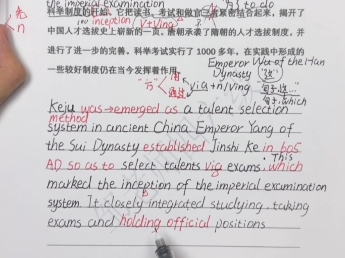 the imperial examination
inception
V+Ving
to do
科举制度的开始，它把读书、考试和做官三者紧密结合起来，揭开了
中国人才选拔史上崭新的一页。唐朝承袭了隋朝的人才选拔制度，并
进行了进一步的完善。科举考试实行了 1000 多年，在实践中形成的
一些较好制度仍在当今发挥着作用。
Emperor Wu of the Han
Dynasty
via+n/Ving
which
Keju was→emerged as a talent selection
method
system in ancient China. Emperor Yang of
the Sui Dynasty established Jinshi Ke in 605
This
AD so as to select talents via exams, which
marked the inception of the imperial examination
system. It closely integrated studying, taking
exams and holding official positions